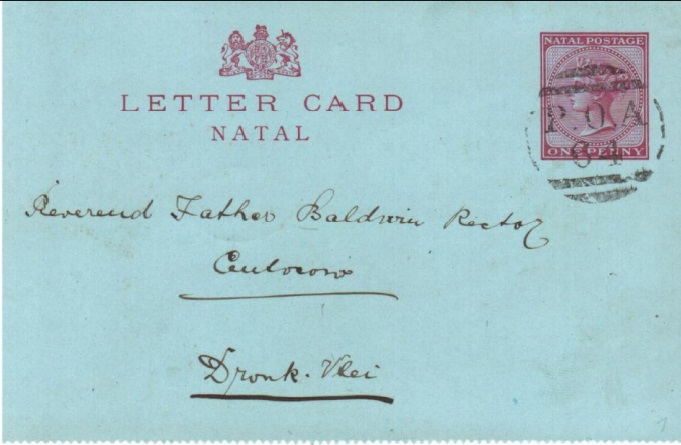 NATAL POSTAGE
LETTER CARD
NATAL
P.O.A
64
ONE PENNY
Reverend Father Baldwin Rector
Centocow
Dronk. Vlei